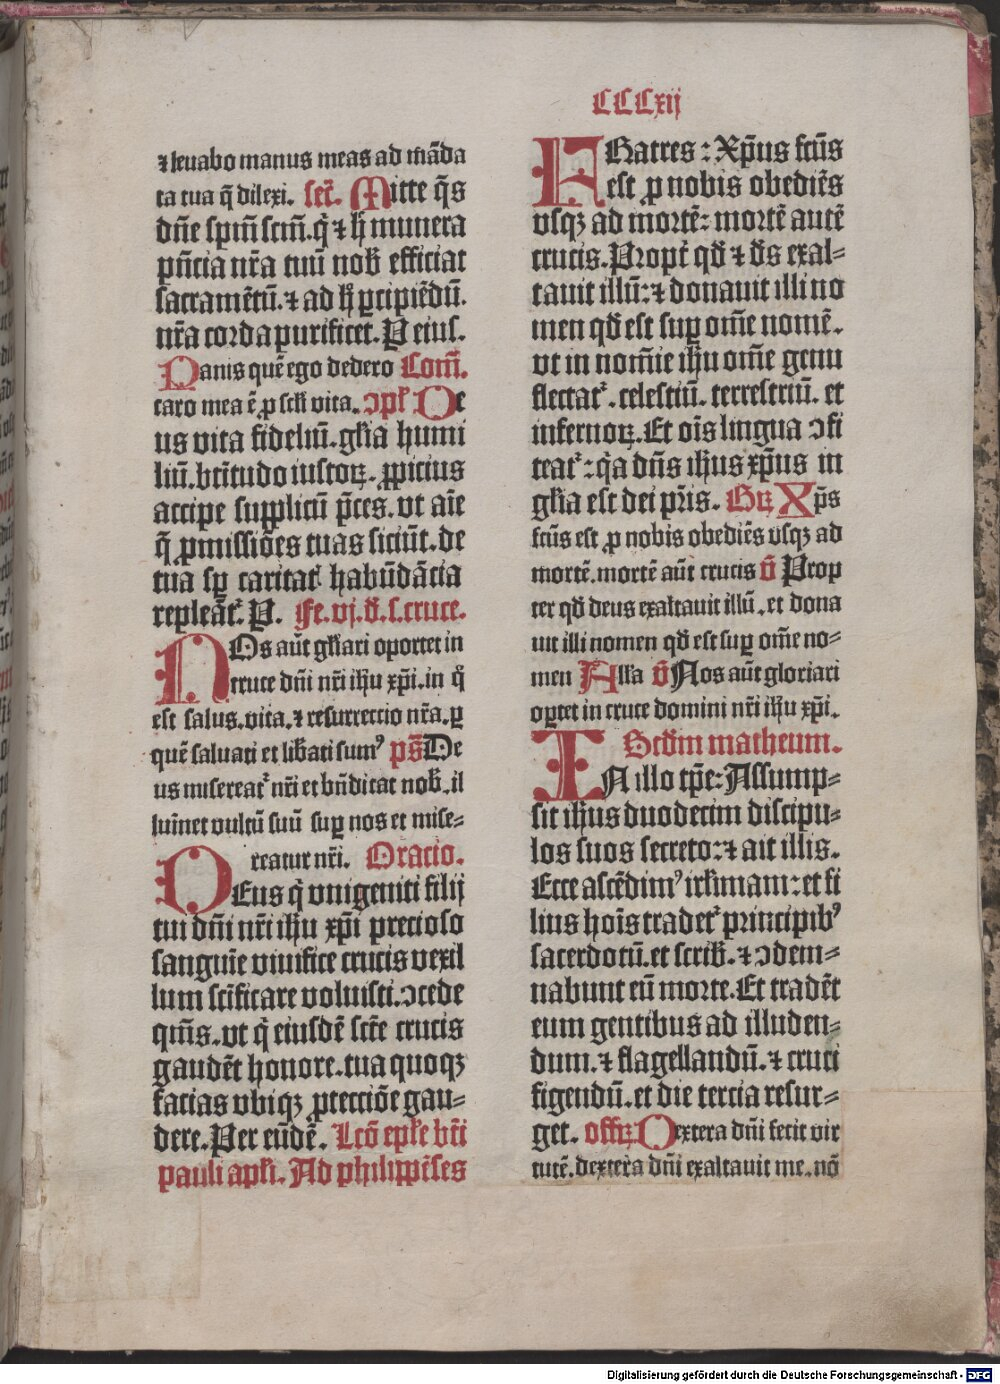 CCCxij
⁊ leuabo manus meas ad mãda
ta tua q̃ dilexi. Secr̃. Mitte q̃s
dñe spm̃ scm̃. q̇ ⁊ h̃ munera
pñcia nr̃a tuũ nob̃ efficiat
sacramẽtũ. ⁊ ad h̃ ꝑcipiẽdũ.
nr̃a corda purificet. P eius.
Panis quẽ ego dedero Com̃.
caro mea ẽ ꝓ scłi vita. ↄpł De
us vita fideliũ. głia humi
liũ. btĩtudo iustoꝝ. ꝓpicius
accipe supplicũ p̃ces. vt aĩe
q̃ ꝓmissiões tuas siciũt. de
tua sꝑ caritat̃ habũdãcia
repleãt᷑. P. Fe. vj. d̃. s. cruce.
NOs aũt głiari oportet in
cruce dñi nr̃i ihũ xp̃i. in q̊
est salus. vita. ⁊ resurrectio nr̃a. ꝑ
quẽ saluati et lib̃ati sumꝰ ps̃ De
us misereat᷑ nr̃i et bñdicat nob̃. il
luĩnet vultũ suũ sup nos et mise⸗
reatur nr̃i. Oracio.
DEus q̇ vnigeniti filij
tui dñi nr̃i ihũ xp̃i precioso
sanguĩe viuifice crucis vexil
lum scĩficare voluisti. ↄcede
qm̃s. vt q̇ eiusdẽ scte crucis
gaudẽt honore. tua quoqꝫ
facias vbiqꝫ ꝓtectiõe gau⸗
dere. Per eũdẽ. Lcõ epłe bti
pauli apłi. Ad philippẽses
FRatres : Xp̃us fcũs
est ꝓ nobis obediẽs
vsqꝫ ad mortẽ: mortẽ autẽ
crucis. Propt̃ qd̃ ⁊ ds̃ exal⸗
tauit illũ: ⁊ donauit illi no
men qd̃ est sup om̃e nomẽ.
vt in nom̃ie ihũ om̃e genu
flectat᷑. celestiũ. terrestriũ. et
infernoꝝ. Et oĩs lingua ↄfi
teat᷑ : q̇a dñs ihũs xp̃us in
głia est dei pr̃is. Grꝝ Xp̃s
fcũs est ꝓ nobis obediẽs vsqꝫ ad
mortẽ. mortẽ aũt crucis v̄ Prop
ter qd̃ deus exaltauit illũ. et dona
uit illi nomen qd̃ est sup om̃e no⸗
men Alła v̄ Nos aũt gloriari
oꝑtet in cruce domini nr̃i ihũ xp̃i.
Scdm̃ matheum.
IN illo tp̃e: Assump⸗
sit ihũs duodecim discipu⸗
los suos secreto: ⁊ ait illis.
Ecce ascẽdimꝰ irłimam: et fi
lius hoĩs tradet᷑ principibꝰ
sacerdotũ. et scrib̃. ⁊ ↄdem⸗
nabunt eũ morte. Et tradẽt
eum gentibus ad illuden⸗
dum. ⁊ flagellandũ. ⁊ cruci
figendũ. et die tercia resur⸗
get. offꝝ Dextera dñi fecit vir
tutẽ. dextera dñi exaltauit me. nõ
Digitalisierung gefördert durch die Deutsche Forschungsgemeinschaft - DFG